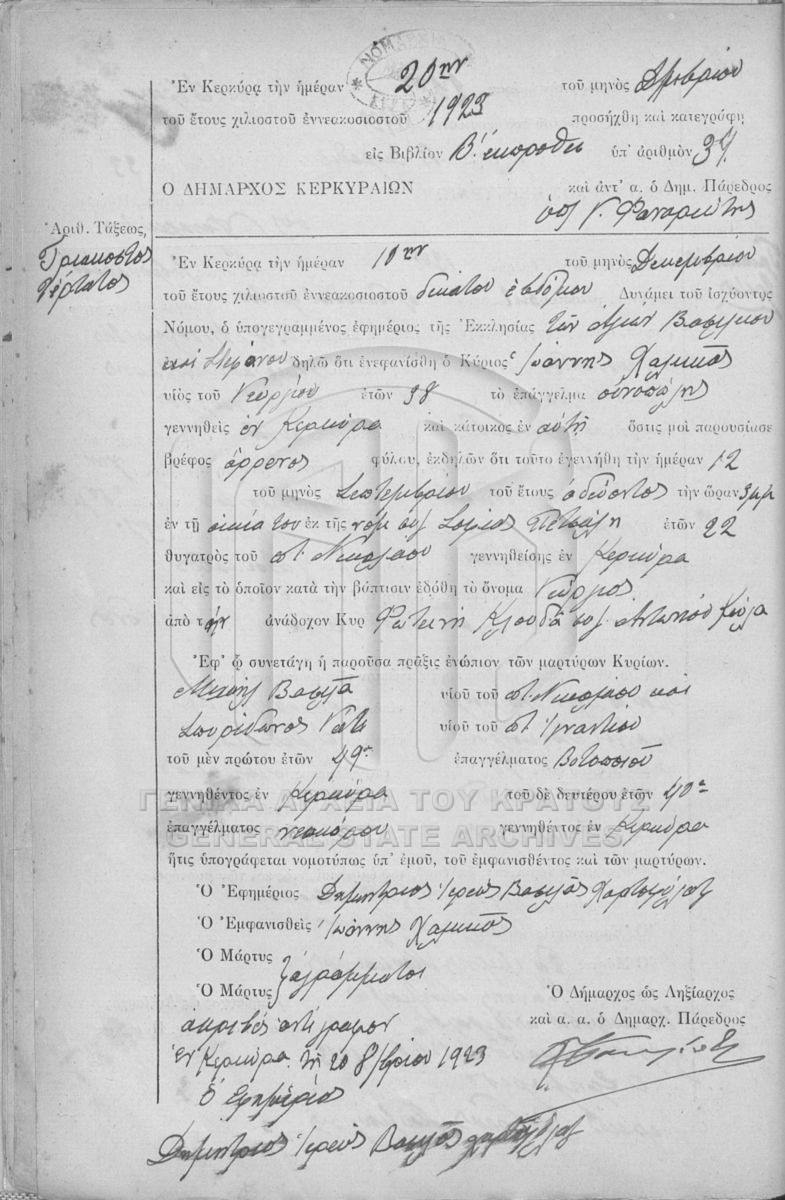 ΝΟΜΑΡΧΙΑ
Ἐν Κερκύρᾳ τὴν ἡμέραν 20ην τοῦ μηνὸς
τοῦ ἔτους χιλιοστοῦ ἐννεακοσιοστοῦ 1923 προσήχθη καὶ κατεγράφη
εἰς Βιβλίον Β. ἐκπροθ. ὑπ' ἀριθμὸν 34
Ο ΔΗΜΑΡΧΟΣ ΚΕΡΚΥΡΑΙΩΝ καὶ ἀντ' α. ὁ Δημ. Πάρεδρος
Φαναριώτης
Ἀριθ. Τάξεως,
Τριακοστὸς
Τέταρτος
Ἐν Κερκύρᾳ τὴν ἡμέραν 10ην τοῦ μηνὸς Δεκεμβρίου
τοῦ ἔτους χιλιοστοῦ ἐννεακοσιοστοῦ δεκάτου ἑβδόμου Δυνάμει τοῦ ἰσχύοντος
Νόμου, ὁ ὑπογεγραμμένος ἐφημέριος τῆς Ἐκκλησίας τῶν Ἁγίων Βασιλείου
καὶ Στεφάνου δηλῶ ὅτι ἐνεφανίσθη ὁ Κύριος Ἰωάννης Χαλικιᾶς
υἱὸς τοῦ Γεωργίου ἐτῶν 38 τὸ ἐπάγγελμα οἰνοπώλης
γεννηθεὶς ἐν Κερκύρᾳ καὶ κάτοικος ἐν αὐτῇ ὅστις μοὶ παρουσίασε
βρέφος ἄρρενος φύλου, ἐκδηλῶν ὅτι τοῦτο ἐγεννήθη τὴν ἡμέραν 12
τοῦ μηνὸς Σεπτεμβρίου τοῦ ἔτους ὁδεύοντος τὴν ὥραν 3 μμ
ἐν τῇ οἰκίᾳ του ἐκ τῆς νομ. συζ. Σοφίας ἐτῶν 22
θυγατρὸς τοῦ ποτ. Νικολάου γεννηθείσης ἐν Κερκύρᾳ
καὶ εἰς τὸ ὁποῖον κατὰ τὴν βάπτισιν ἐδόθη τὸ ὄνομα Γεώργιος
ἀπὸ τὴν ἀνάδοχον Κυρ Φωτεινὴ Κλουδᾶ συζ. Ἀντωνίου
Ἐφ' ᾧ συνετάγη ἡ παροῦσα πρᾶξις ἐνώπιον τῶν μαρτύρων Κυρίων.
Μιχαὴλ Βασιλᾶ υἱοῦ τοῦ ποτ. Νικολάου καὶ
Σπυρίδωνος υἱοῦ τοῦ ποτ. Ἰγνατίου
τοῦ μὲν πρώτου ἐτῶν 49 ἐπαγγέλματος
γεννηθέντος ἐν Κερκύρᾳ τοῦ δὲ δευτέρου ἐτῶν 40
ἐπαγγέλματος νεωκόρου γεννηθέντος ἐν Κερκύρᾳ
ἥτις ὑπογράφεται νομοτύπως ὑπ' ἐμοῦ, τοῦ ἐμφανισθέντος καὶ τῶν μαρτύρων.
Ὁ Ἐφημέριος Δημήτριος Ἱερεὺς Βασιλᾶς
Ὁ Ἐμφανισθεὶς Ἰωάννης Χαλικιᾶς
Ὁ Μάρτυς
Ὁ Μάρτυς ἀγράμματοι
Ὁ Δήμαρχος ὡς Ληξίαρχος
καὶ α. α. ὁ Δημαρχ. Πάρεδρος
ἀκριβὲς ἀντίγραφον
ἐν Κερκύρᾳ τῇ 20 8/βρίου 1923
Ὁ Ἐφημέριος
Δημήτριος Ἱερεὺς Βασιλᾶς
ΓΕΝΙΚΑ ΑΡΧΕΙΑ ΤΟΥ ΚΡΑΤΟΥΣ
GENERAL STATE ARCHIVES